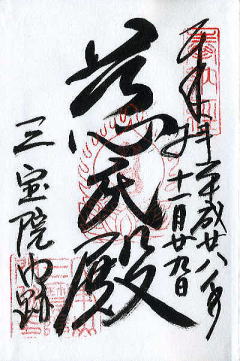 奉拝 平成廿八年
十一月廿九日
慈氏殿
三宝院門跡